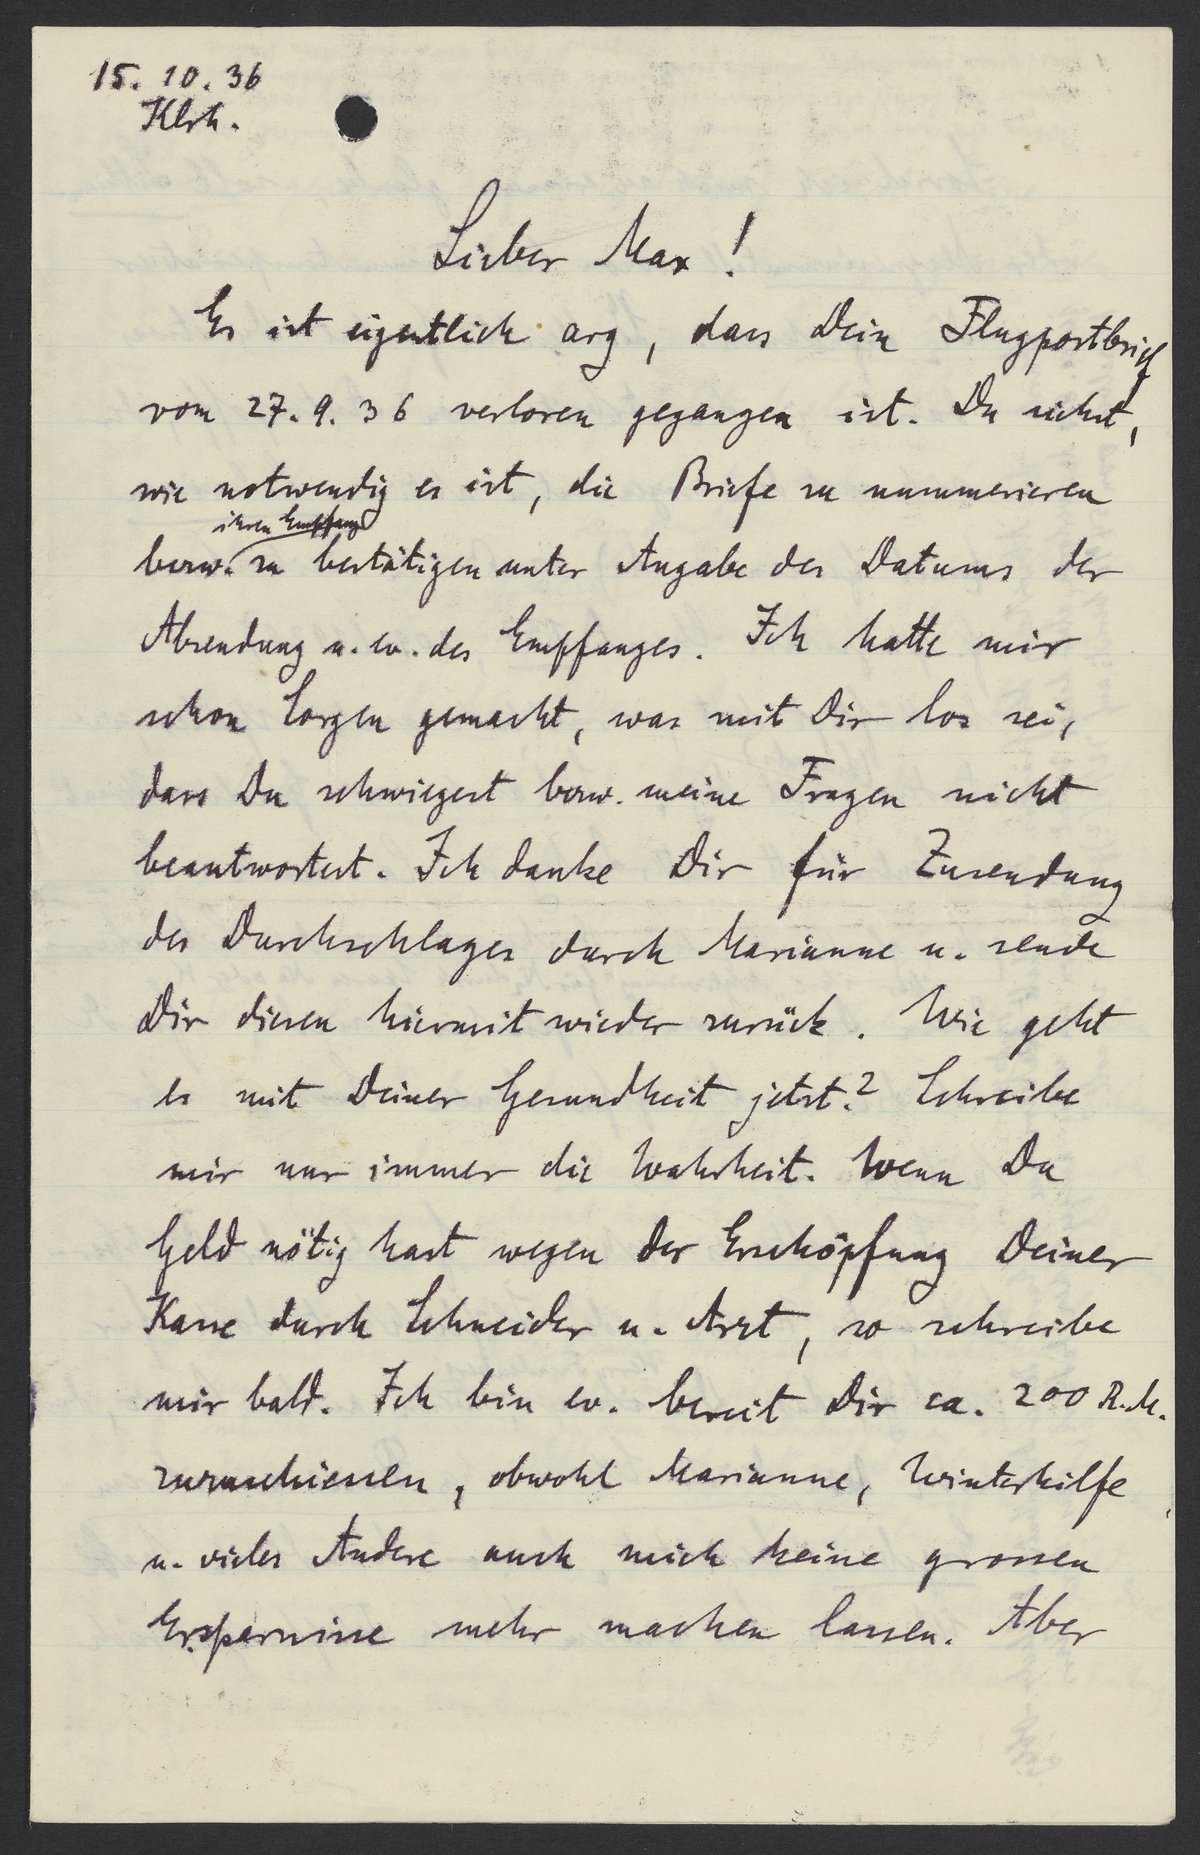 15. 10. 36
Klrh.
Lieber Max!
Es ist eigentlich arg, dass Dein Flugpostbrief
vom 27. 9. 36 verloren gegangen ist. Du siehst,
wie notwendig es ist, die Briefe zu nummerieren
ihren Empfang
bezw. zu bestätigen unter Angabe des Datums der
Absendung u. ev. des Empfanges. Ich hatte mir
schon Sorgen gemacht, was mit Dir los sei,
dass Du schwiegest bezw. meine Fragen nicht
beantwortest. Ich danke Dir für Zusendung
des Durchschlages durch Marianne u. sende
Dir diesen hiermit wieder zurück. Wie geht
es mit Deiner Gesundheit jetzt? Schreibe
mir nur immer die Wahrheit. Wenn Du
Geld nötig hast wegen der Erschöpfung Deiner
Kasse durch Schneider u. Arzt, so schreibe
mir bald. Ich bin ev. bereit Dir ca. 200 R.M.
zuzuschiessen, obwohl Marianne, Winterhilfe
u. vieles Andere auch mich keine grossen
Erspernisse mehr machen lassen. Aber